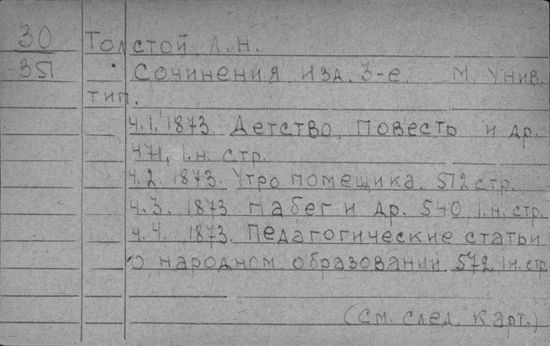 30 Толстой Л.Н.
351 Сочинения изд. 3-е. М. Унив.
тип.
ч.1. 1873. Детство, Повесть и др.
471, 1.н. стр.
ч.2. 1873. Утро помещика. 512 стр.
ч.3. 1873. Набег и др. 540, 1.н. стр.
ч.4. 1873. Педагогические статьи
о народном образовании 572 1н. стр
(См. след. карт.)